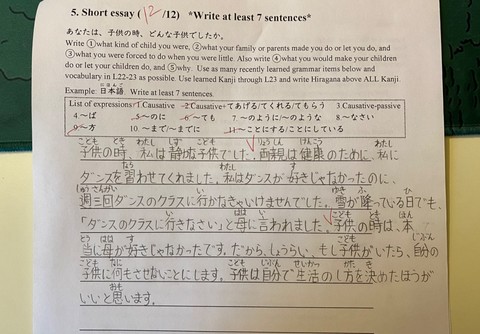 5. Short essay (12/12) *Write at least 7 sentences*
あなたは、子供の時、どんな子供でしたか。
Write ①what kind of child you were, ②what your family or parents made you do or let you do, and
③what your were forced to do when you were little. Also write ④what you would make your children
do or let your children do, and ⑤why. Use as many recently learned grammar items below and
vocabulary in L22-23 as possible. Use learned Kanji through L23 and write Hiragana above ALL Kanji.
にほんご
Example: 日本語 Write at least 7 sentences.
List of expressions: 1 Causative 2 Causative+てあげる/てくれる/てもらう 3.Causative-passive
4. ～ば 5. ～のに 6. ～ても 7. ～のように/～のような 8. ～なさい
9. ～方 10. ～まで/～までに 11. ～ことにする/ことにしている
こども とき わたし しず こども りょうしん けんこう わたし
子供の時、私は静かな子供でした。両親は健康のために、私に
なら わたし す
ダンスを習わせてくれました。私はダンスが好きじゃなかったのに、
しゅうさんかい い ゆき ふ ひ
週三回ダンスのクラスに行かなきゃいけませんでした。雪が降っている日でも、
い はは い こども とき ほん
「ダンスのクラスに行きなさい」と母に言われました。子供の時は、本
とう はは す こども じぶん
当に母が好きじゃなかったです。だから、しょうらい、もし子供がいたら、自分の
こども なに こども じぶん せいかつ かた き
子供に何もさせないことにします。子供は自分で生活のし方を決めたほうが
おも
いいと思います。